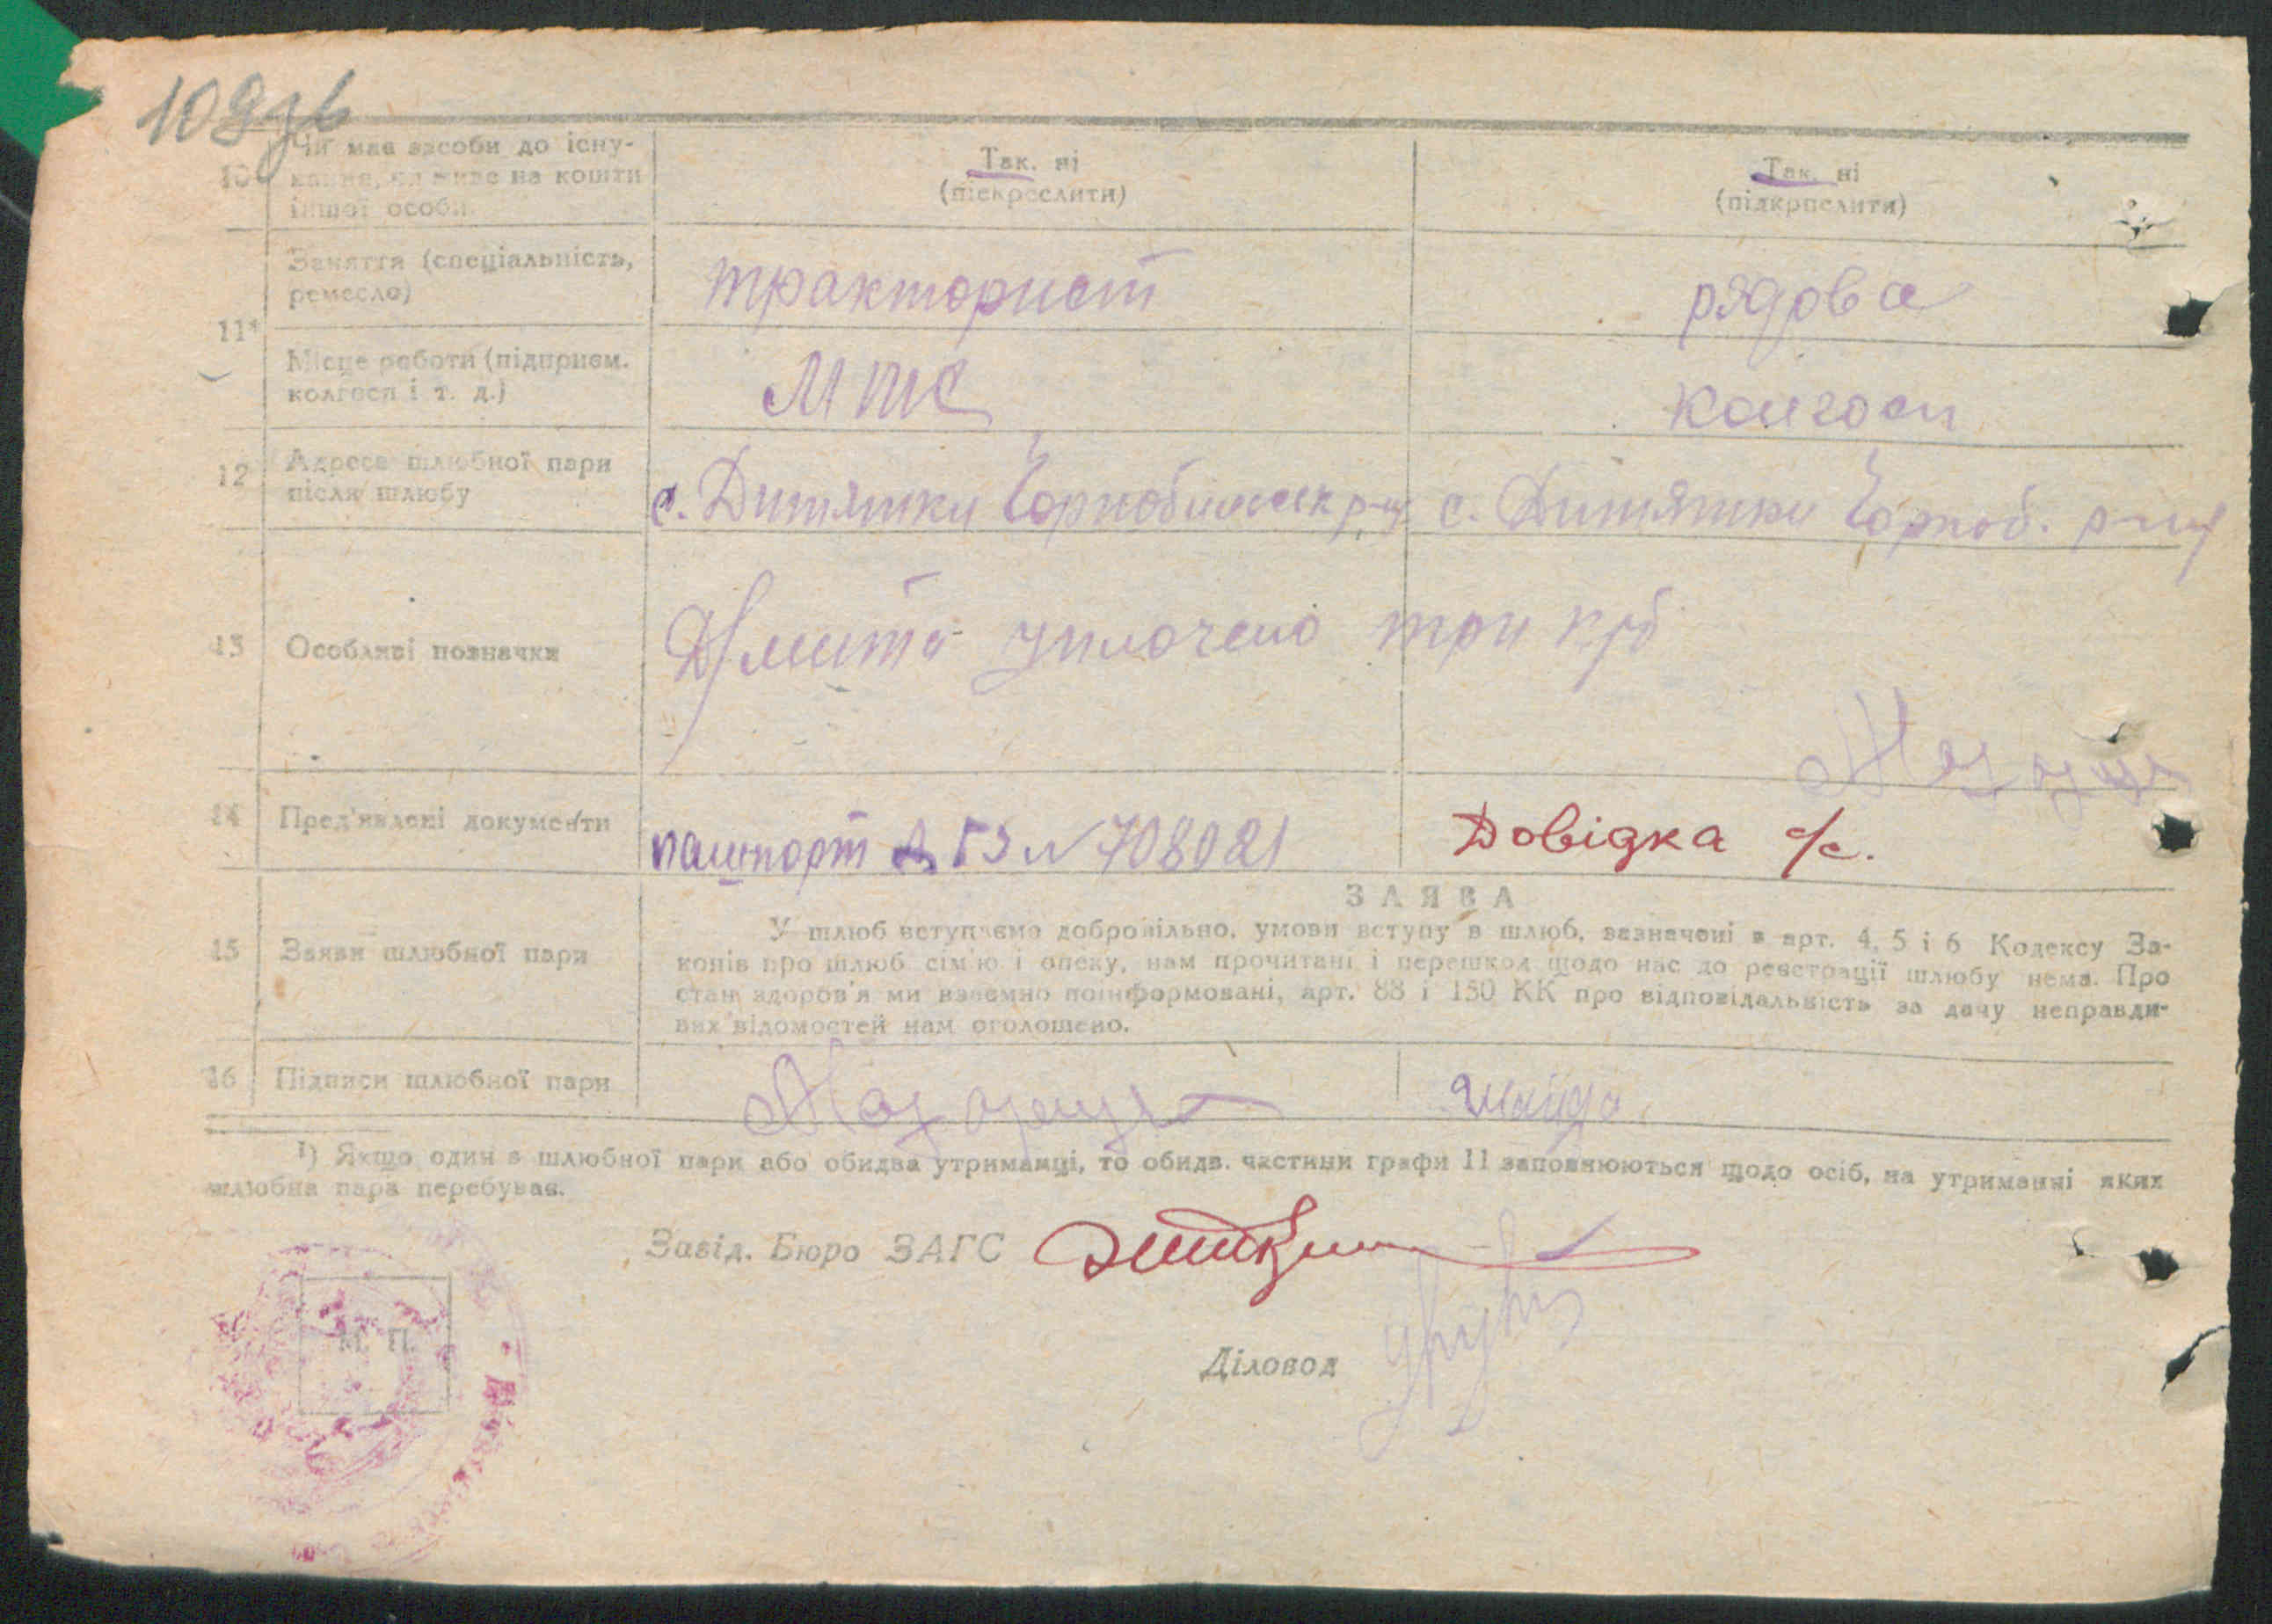 109зв
10 Чи має засоби до існу-
вання, чи живе на кошти
іншої особи
Так. ні
(підкреслити)
Так. ні
(підкреслити)
11¹
Заняття (спеціальність,
ремесло)
тракторист
рядова
Місце роботи (підприєм.
колгосп і т. д.)
МТС
колгосп
12 Адреса шлюбної пари
після шлюбу
с. Дитятки Чорнобильськ р-ну
с. Дитятки Чорноб. р-ну
13 Особливі позначки
Д/мито уплочено три крб
14 Пред'явлені документи
пашпорт
№ 708021
Довідка с/с.
15 Заяви шлюбної пари
ЗАЯВА
У шлюб вступаємо добровільно, умови вступу в шлюб, зазначені в арт. 4, 5 і 6 Кодексу За-
конів про шлюб сім'ю і опеку, нам прочитані і перешкод щодо нас до реєстрації шлюбу нема. Про
стан здоров'я ми взаємно поінформовані, арт. 88 і 130 КК про відповідальність за дачу неправди-
вих відомостей нам оголошено.
16 Підписи шлюбної пари
1) Якщо один з шлюбної пари або обидва утриманці, то обидв. частини графи 11 заповнюються щодо осіб, на утриманні яких
шлюбна пара перебуває.
Завід. Бюро ЗАГС
М. П.
Діловод